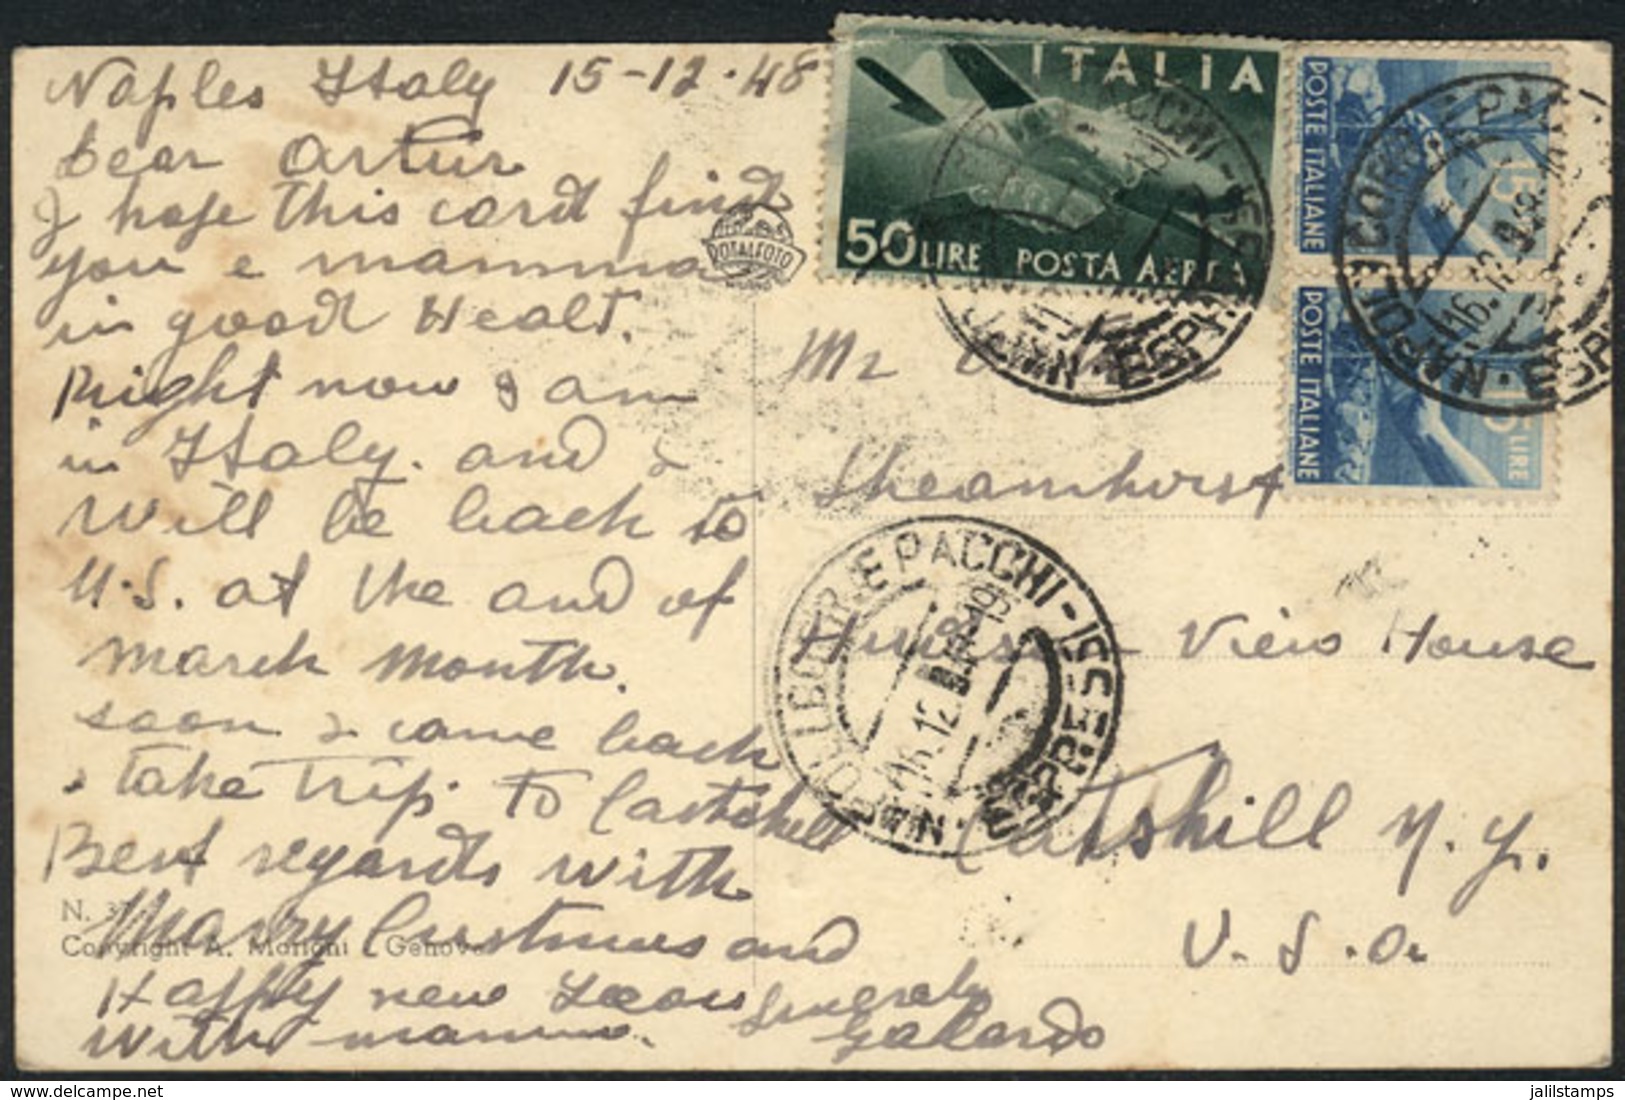 Naples Italy 15-12-48
Dear Artur
I hope this card find
you e mamma
in good Healt.
Right now I am
in Italy. and I
will be back to
U.S. at the and of
march month.
soon I came back
I take trip to Castchell
Best regards with
Marry Cristmas and
Happy new Years
with mamma.
Galardo
N. 37
Copyright A. Morigni Genova
ROTALFOTO
MILANO
ITALIA
50 LIRE POSTA AEREA
POSTE ITALIANE
15
POSTE ITALIANE
15 LIRE
NAPOLI CORR. E PACCHI -
ESPR
16.12.
NAPOLI CORR. E PACCHI -
ESPRESSI
16.12.
Mr
Sheamhorst
View House
Catskill N.Y.
U.S.A.
jalilstamps